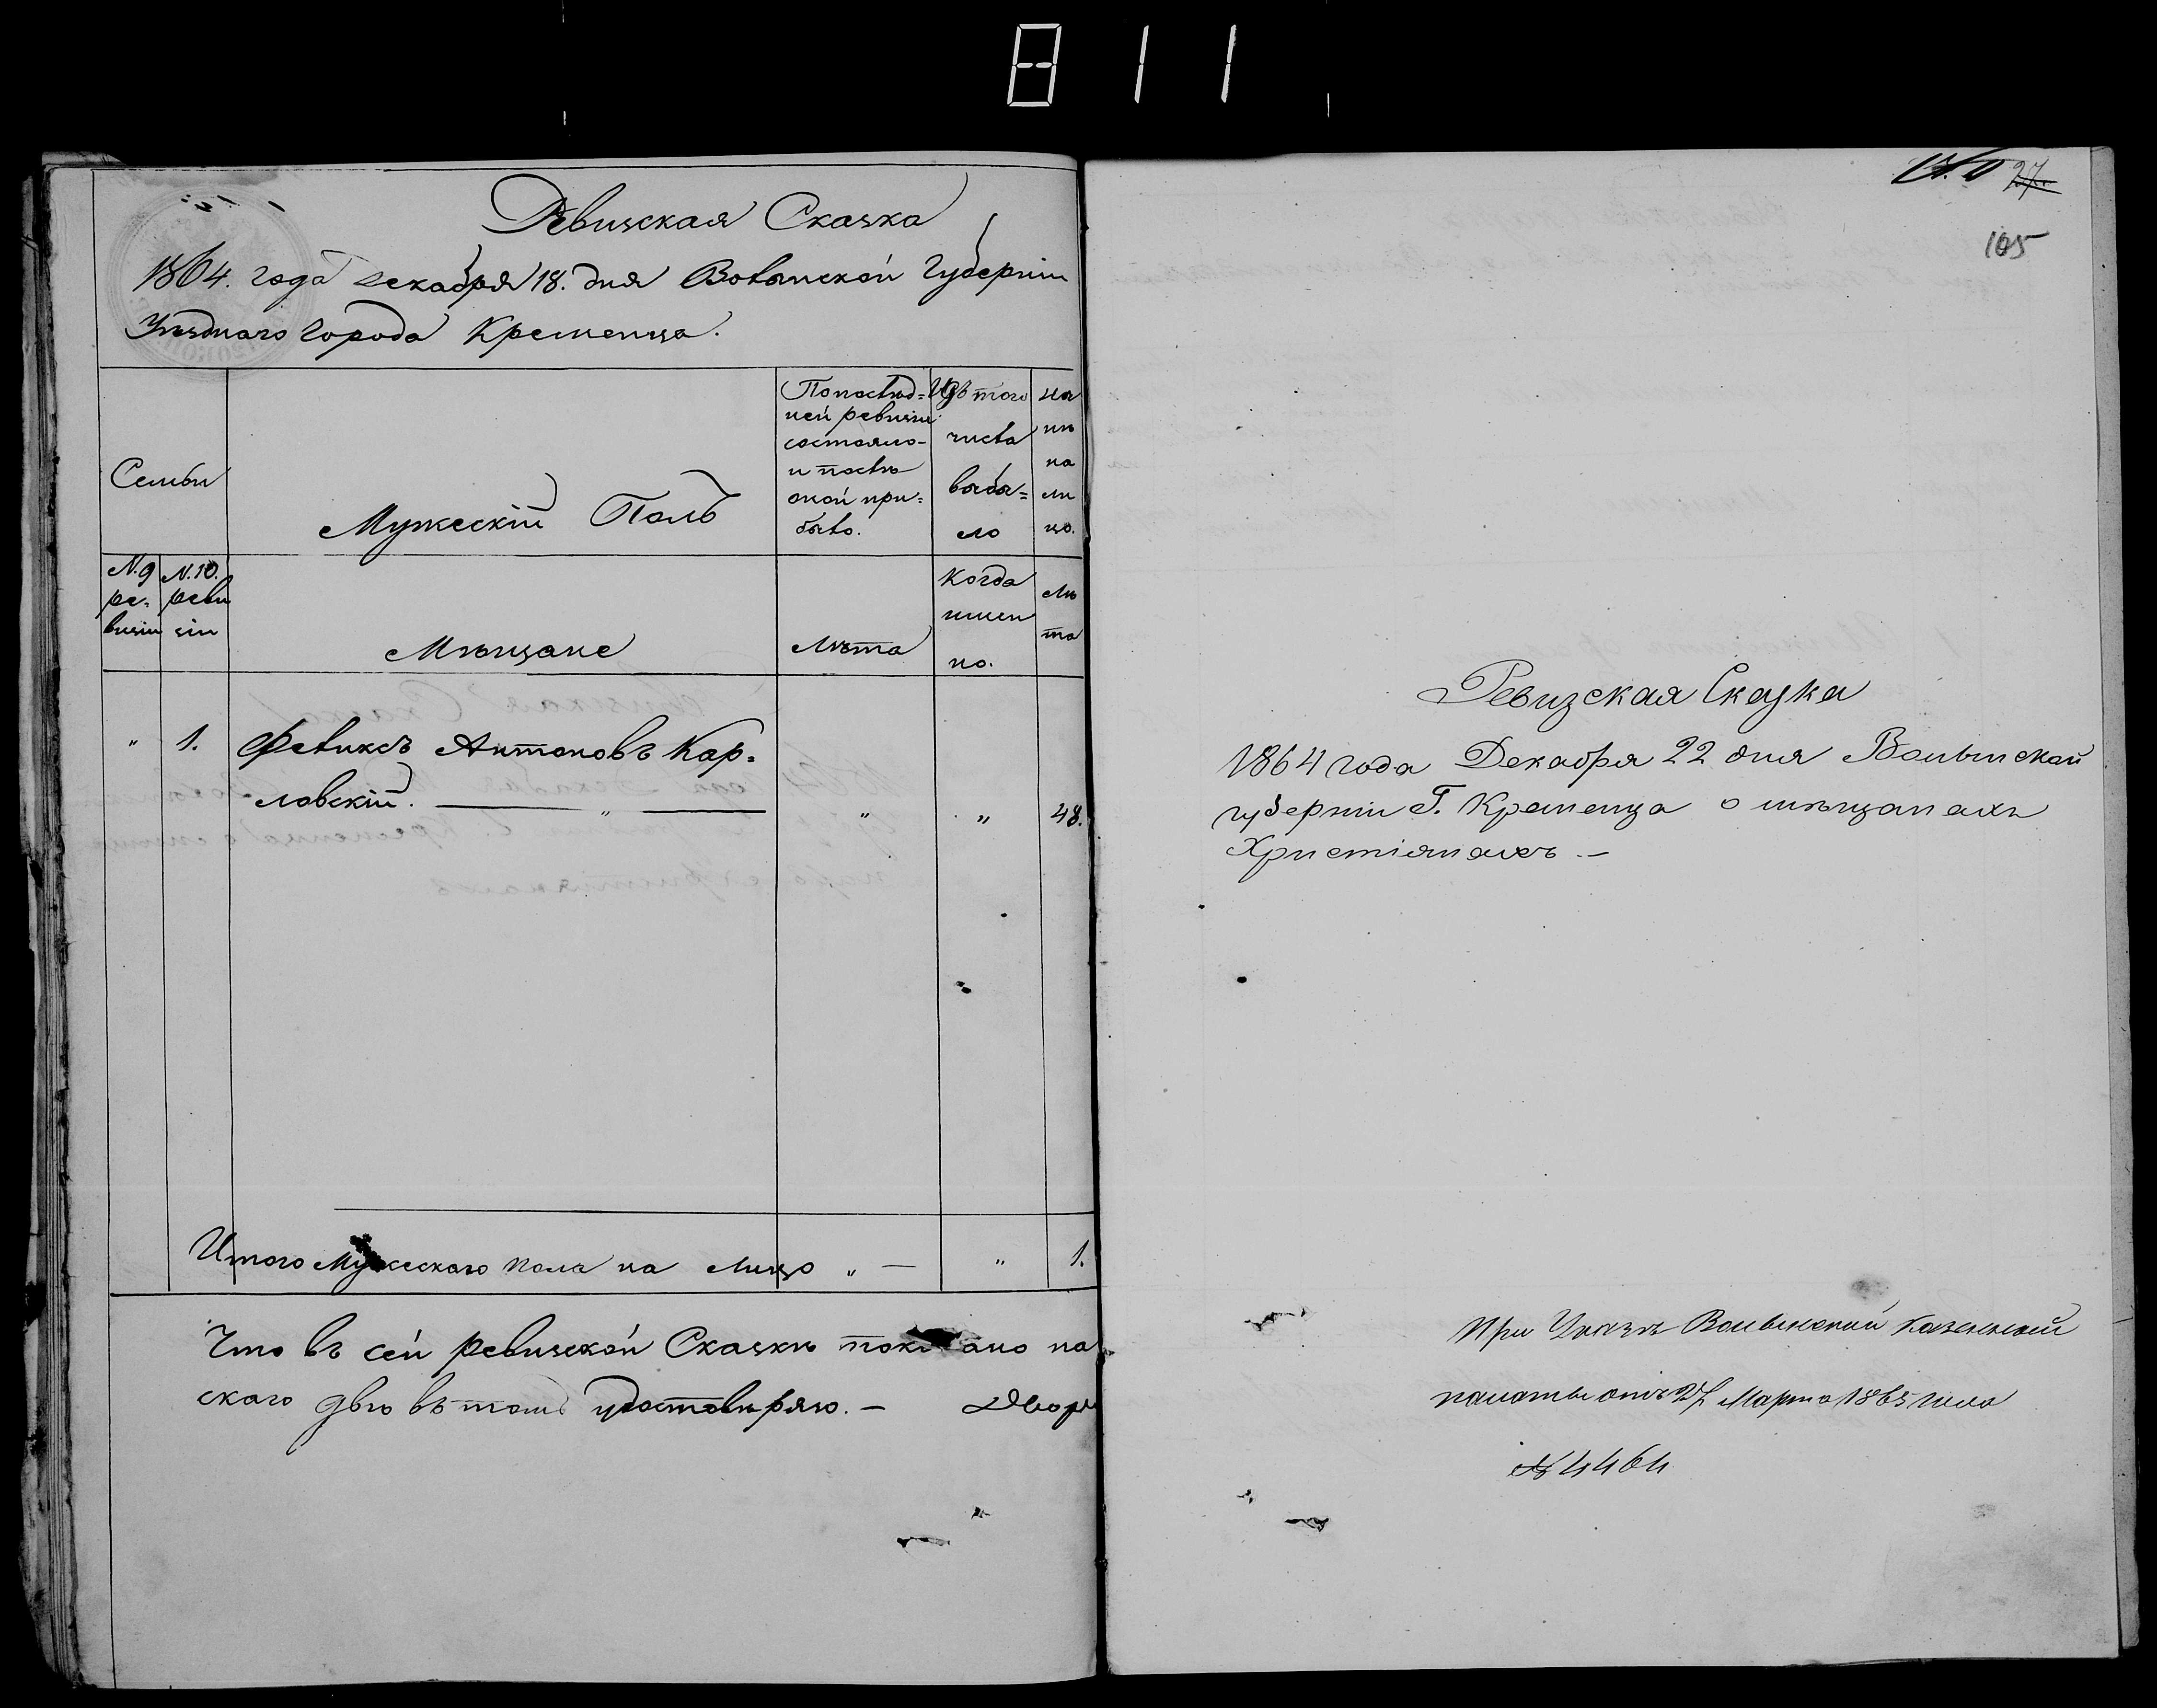 811
Ревизская Сказка
1864. года декабря 18. дня Волынской Губерніи
Уѣзднаго города Кременца.
Семьи
Мужескій Полъ
По послѣд=
ней ревизіи
состояло
и послѣ
оной при=
было.
Изъ того
числа
выбы=
ло
Нынѣ
на
ли
цо.
N. 9
ре=
визіи
N. 10.
реви
зіи
Мѣщане
Лѣта
Когда
имен
но.
Лѣ
та
" 1. Феликсъ Антоновъ Кар=
ловскій. — " — " " 48.
Итого Мужескаго пола на Лицо " — " 1.
Что въ сей ревизской Сказкѣ показано на
скаго двѣ въ томъ удостовѣряю. — Двор
27.
105
Ревизская Сказка
1864 года Декабря 22 дня Волынской
губерніи Г. Кременца о мѣщанахъ
Христіянахъ. —
При Указѣ Волынской Казенной
палаты отъ Марта 1865 года
№ 4464